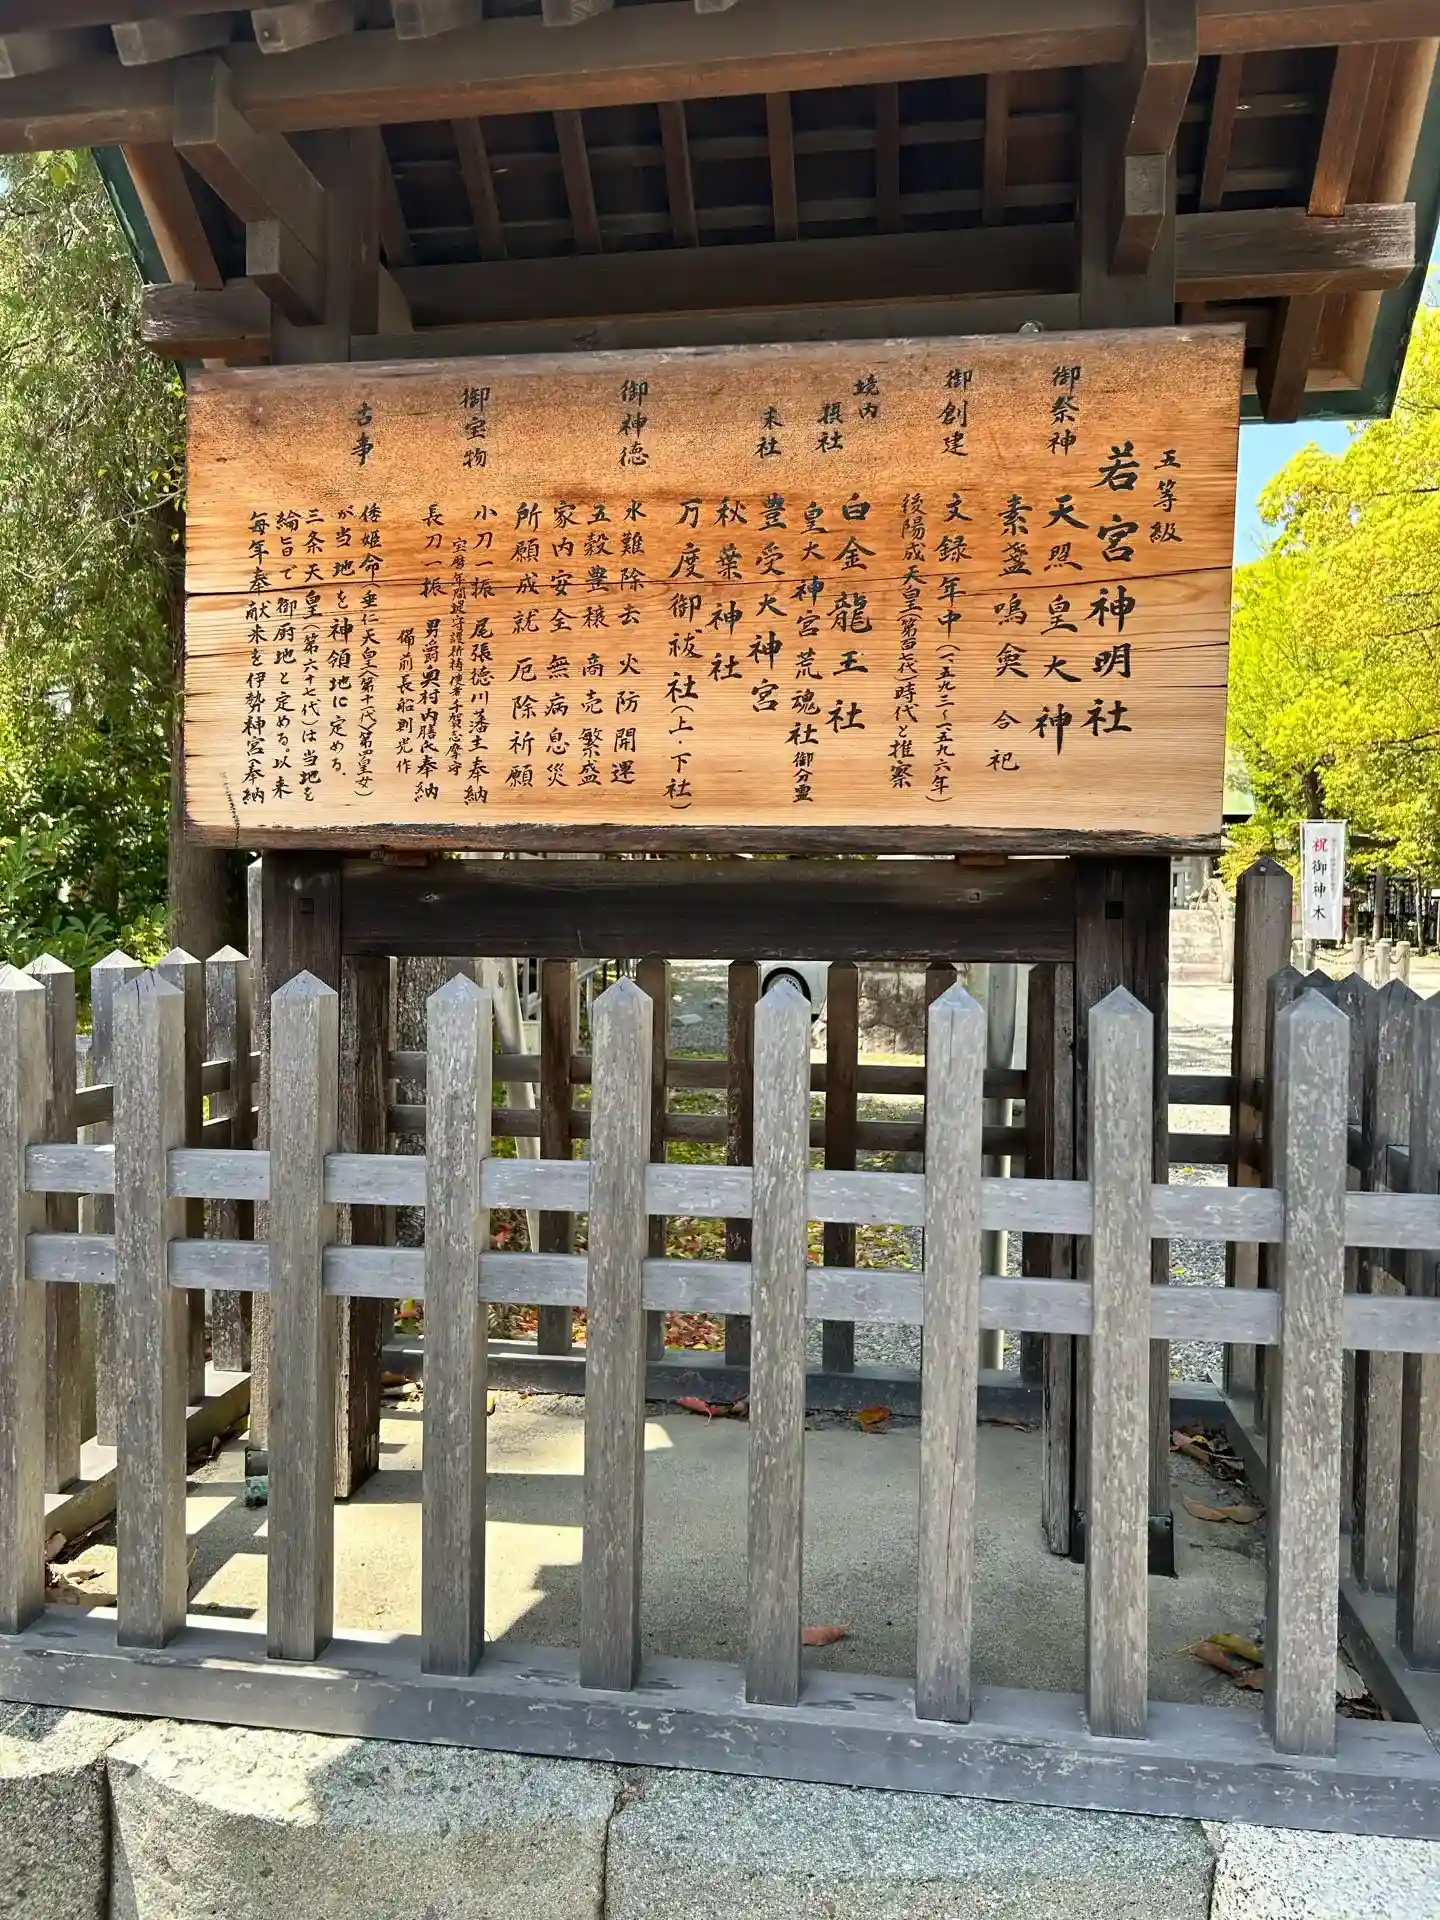 五等級
若宮神明社
御祭神 天照皇大神
素盞嗚尊 合祀
御創建 文録年中(一五九二〜一五九六年)
後陽成天皇(第百七代)時代と推察
境内
摂社 白金龍王社
皇大神宮荒魂社 御分霊
末社 豊受大神宮
秋葉神社
万度御祓社(上・下社)
御神徳 水難除去 火防開運
五穀豊穣 商売繁盛
家内安全 無病息災
所願成就 厄除祈願
御宝物 小刀一振 尾張徳川藩主奉納
宝暦年間堤守護祈祷使者千賀志摩守
長刀一振 男爵奥村内膳氏奉納
備前長船則光作
古事 倭姫命(垂仁天皇(第十一代)第四皇女)
が当地を神領地に定める。
三条天皇(第六十七代)は当地を
綸旨で御厨地と定める。以来
毎年奉献米を伊勢神宮へ奉納
祝御神木